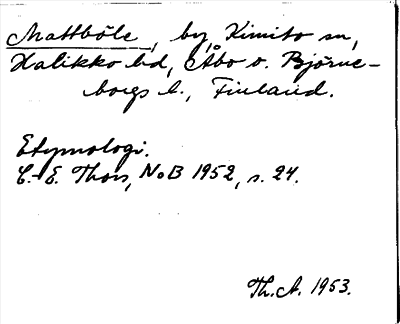 Mattböle, by, Kimito sn,
Halikko hd, Åbo o. Björne-
borgs l., Finland.
Etymologi.
C.-E. Thors, NoB 1952, s. 24.
Th.A. 1953.